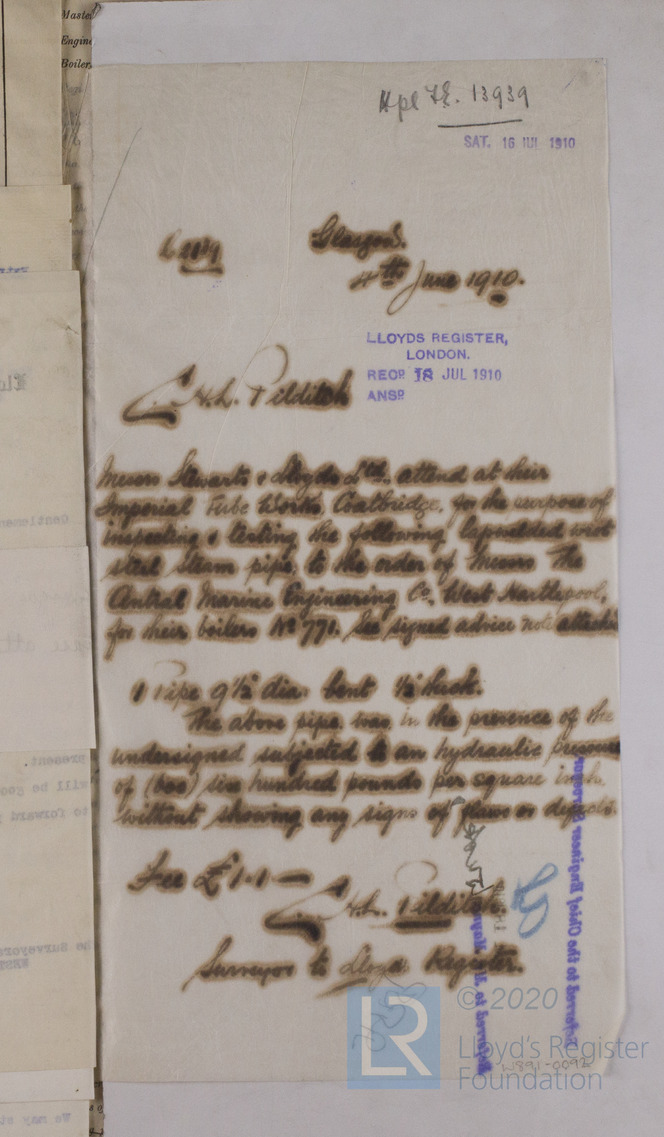 Master
Engine
Boiler
Hpl F.E. 13939
SAT. 16 JUL 1910
Glasgow.
4th June 1910.
LLOYDS REGISTER,
LONDON.
RECD 18 JUL 1910
ANSD
C. H. L. Pilditch
Messrs Stewarts & Lloyds Ltd., attend at their
Imperial Tube Works, Coatbridge, for the purpose of
inspecting & testing the following lapwelded wrot
steel steam pipe, to the order of Messrs The
Central Marine Engineering Co, West Hartlepool,
for their boilers No 771. See signed advice note attached
1 Pipe 9½ dia. bent ½ thick.
The above pipe was in the presence of the
undersigned subjected to an hydraulic pressure
of (600) six hundred pounds per square inch
without showing any signs of flaws or defects.
Fee £1-1-
C. H. L. Pilditch.
Surveyor to Lloyds Register.
Referred to the Chief Engineer Surveyor
Referred to Mr
W891-0092
LR
© 2020
Lloyd's Register
Foundation
Gentlemen
present
will be
to forward
the Surveyors
We may